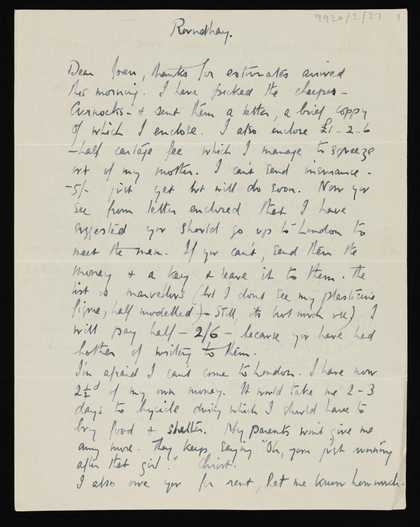 9920/2/27 1
Roundhay.
Dear Joan, thanks for estimates arrived
this morning. I have picked the cheaper -
Curnocks - & sent them a letter, a brief coppy
of which I enclose. I also enclose £1-2-6
- half cartage fee which I manage to squeeze
out of my mother. I can't send insurance -
- 5/- just yet but will do soon. Now you
see from letter enclosed that I have
suggested you should go up to London to
meet the men. If you can't, send them the
money & a key & leave it to them. The
list is marvellous (but I dont see my plasticine
figure, half modelled) - Still its not much use) I
will pay half - 2/6 - because you have had
bother of writing to them.
I'm afraid I can't come to London. I have now
2½d of my own money. It would take me 2-3
days to bycicle during which I should have to
buy food & shelter. My parents won't give me
any more. They keep saying "Oh, you just running
after that girl". Christ.
I also owe you for rent, let me know how much.